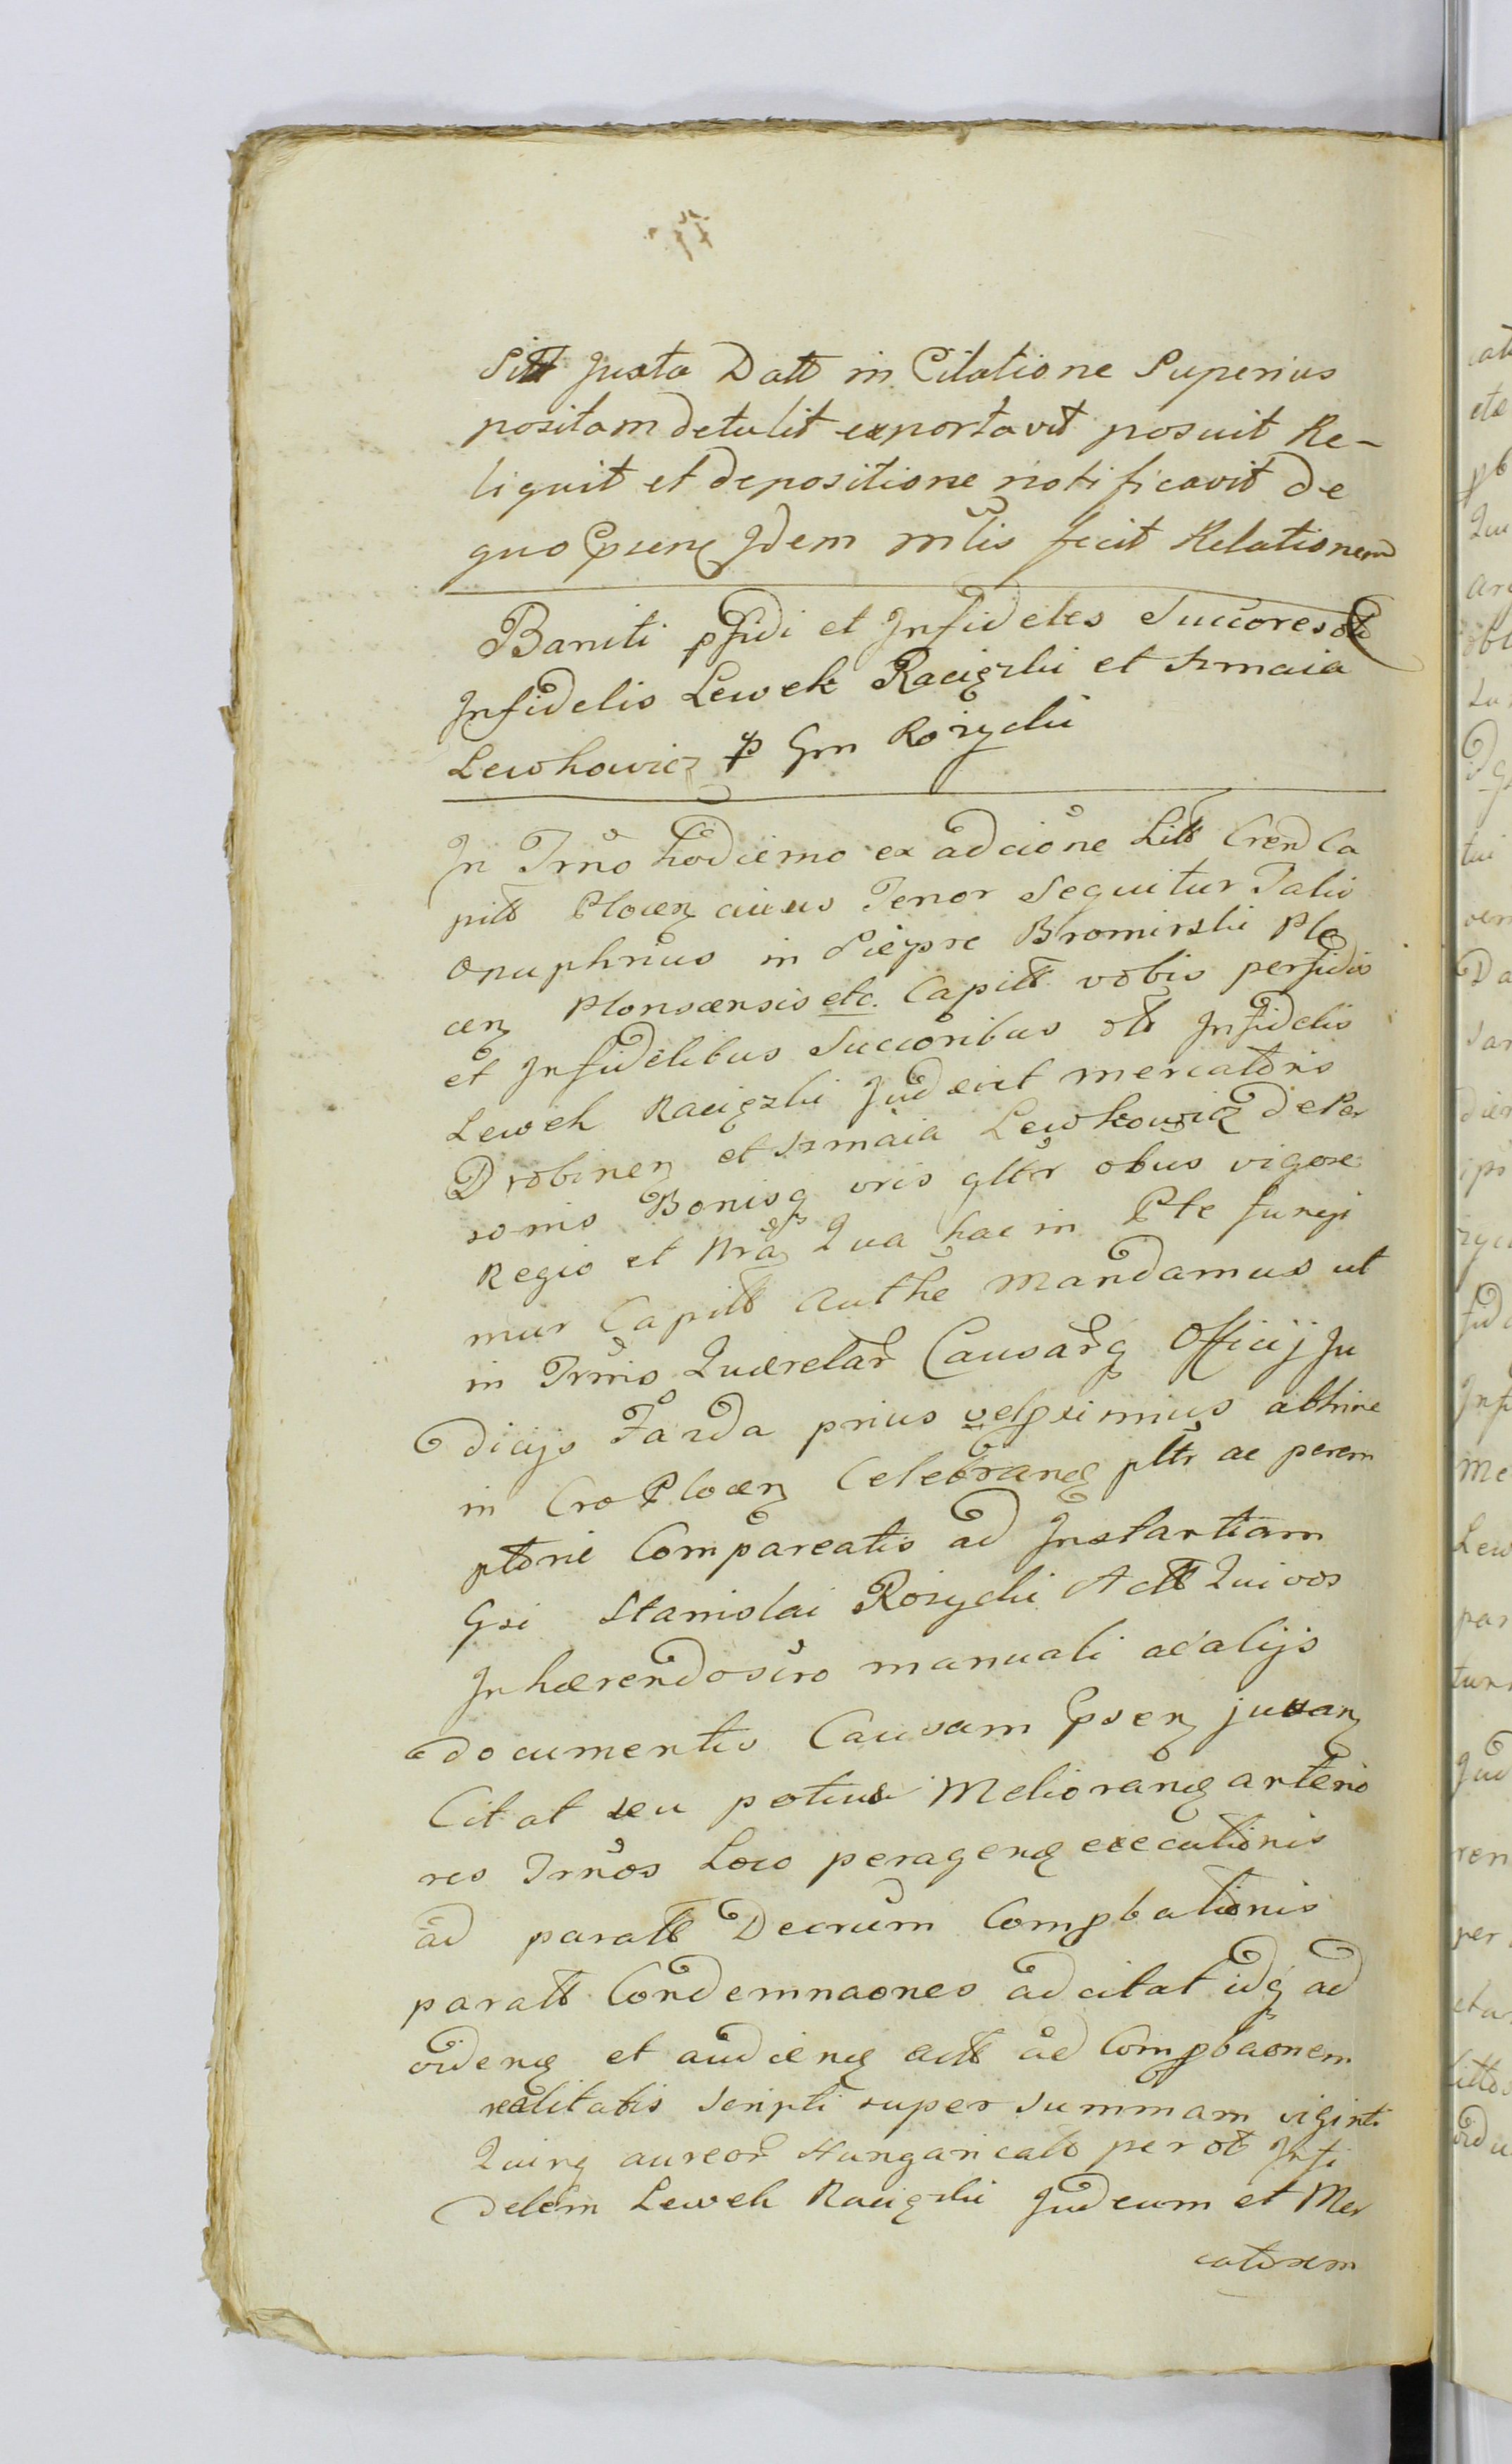 Sitt Juxta Datt in Citatione Superius
positam detulit exportavit posuit Re-
liquit et depositione notificavit De
quo Idem mtlis fecit Relationem
Baniti pfidi et Infideles Succores ott
Infidelis Lewek Raciązki et Szmaia
Lewkowicz p Gm Rożycki
In Trno hodierno ex adcione Litt Cren Ca
pitt Plocen cuius Tenor Sequitur Talis
Onuphrius in Siepre Bromirski Plo
cen Plonscensis etc. Capitt vobis perfidis
et Infidelibus Succoribus ott Infidelis
Lewek Raciązki Judaei et mercatoris
Drobinen et Szmaia Lewkowicz de Per
sonis Bonisq vris glttr obus vigore
Regio et Nra Qua hac in Pte fungi
mur Capitt Autthe Mandamus ut
in Trnis Quaerelar Causarq Officij Ju
dicijs Tarda prius vel pximius abhinc
in Cro Plocen Celebranq pltr ac perem
ptorie Compareatis ad Instantiam
Gsi Stanislai Rożycki Actt Qui vos
Inhaerendo scro manuali ac alijs
documentis Causam Psen juvan
Citat seu potius Melioranq anterio
res Trnos Loco peragenq executionis
ad paratt Decrum Compbationis
paratt Condemnaones adcitat idq ad
videnq et audienq actt ad Compbaonem
realitatis scripti super summam viginti
Quinq aureor Hungaricalt per ott Infi
delem Lewek Raciązki Judeum et Mer
catorem